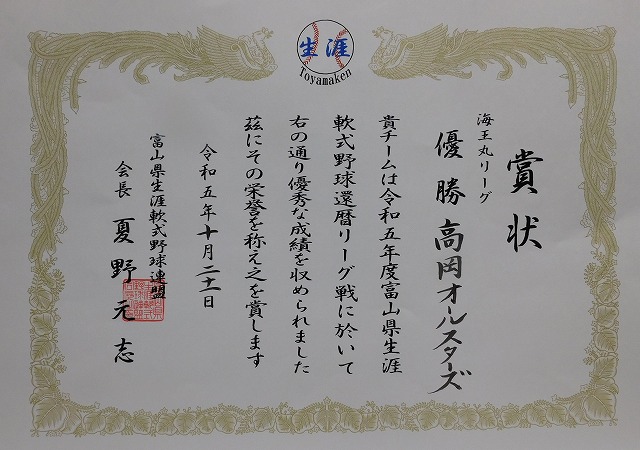 生涯
Toyamaken
賞状
海王丸リーグ
優勝 高岡オールスターズ
貴チームは令和五年度富山県生涯
軟式野球還暦リーグ戦に於いて
右の通り優秀な成績を収められました
茲にその栄誉を称え之を賞します
令和五年十月二十一日
富山県生涯軟式野球連盟
会長 夏野元志